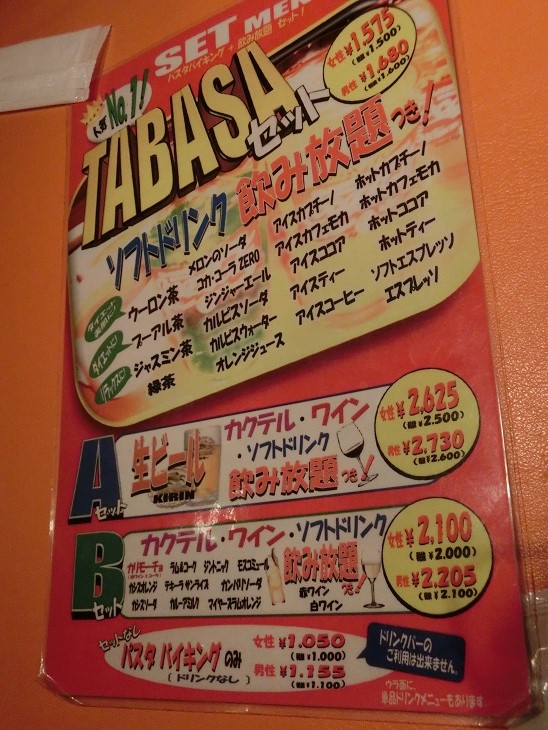 SET MENU
パスタバイキング + 飲み放題 セット!
人気No.1!
TABASAセット
女性¥1.575
(税¥1.500)
男性¥1.680
(税¥1.600)
ソフトドリンク 飲み放題つき!
ダイエット
ウーロン茶
ダイエットに!
プーアル茶
リラックスに!
ジャスミン茶
緑茶
メロンのソーダ
コカ・コーラ ZERO
ジンジャーエール
カルピスソーダ
カルピスウォーター
オレンジジュース
アイスカプチーノ
アイスカフェモカ
アイスココア
アイスティー
アイスコーヒー
ホットカプチーノ
ホットカフェモカ
ホットココア
ホットティー
ソフトエスプレッソ
エスプレッソ
Aセット
生ビール
KIRIN
カクテル・ワイン
・ソフトドリンク
飲み放題つき!
女性¥2.625
(税¥2.500)
男性¥2.730
(税¥2.600)
Bセット
カクテル・ワイン・ソフトドリンク
飲み放題つき!
カリモーチョ ラム&コーク ジントニック モスコミュール
(赤ワインとコーラ)
カシスオレンジ テキーラ サンライズ カンパリソーダ
カシスソーダ カルーアミルク マイヤーズラムオレンジ
赤ワイン
白ワイン
女性¥2.100
(税¥2.000)
男性¥2.205
(税¥2.100)
セットなし
パスタ バイキングのみ
[ドリンクなし]
女性 ¥1.050
(税¥1.000)
男性 ¥1.155
(税¥1.100)
ドリンクバーの
ご利用は出来ません。
ウラ面に、
単品ドリンクメニューもあります